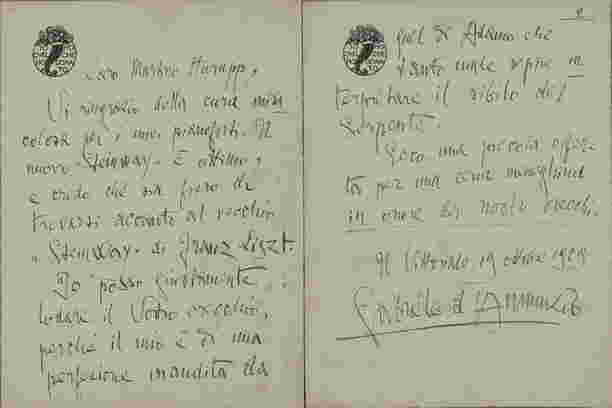 Caro Martino
Vi ringrazio della cura mira
colosa per i miei pianoforti. Il
nuovo "Steinway" è ottimo;
e credo che sia fiero di
trovarsi accanto al vecchio
"Steinway" di Franz Liszt.
Io posso giustamente
lodare il Vostro orecchio,
perché il mio è di una
perfezione inaudita da
2
quel di Adamo che
tanto male seppe in
terpretare il sibilo del
Serpente.
Ecco una piccola offer
ta per una cena
in onore dei nostri orecchi.
Il Vittoriale 19
Gabriele d'Annunzio